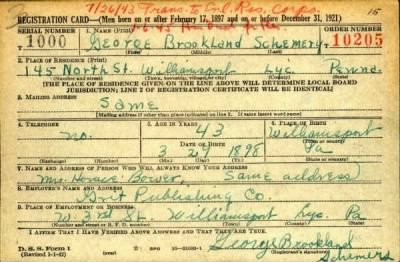 7/26/43 Trans. to Enl. Res. Corps. 15
REGISTRATION CARD—(Men born on or after February 17, 1897 and on or before December 31, 1921)
SERIAL NUMBER 1. NAME (Print) ORDER NUMBER
1000 George Brookland Schemery 10205
(First) (Middle) (Last)
2. PLACE OF RESIDENCE (Print)
145 North St Williamsport Lyc. Penna.
(Number and street) (Town, township, village, or city) (County) (State)
[THE PLACE OF RESIDENCE GIVEN ON THE LINE ABOVE WILL DETERMINE LOCAL BOARD
JURISDICTION; LINE 2 OF REGISTRATION CERTIFICATE WILL BE IDENTICAL]
3. MAILING ADDRESS
Same
[Mailing address if other than place indicated on line 2. If same insert word same]
4. TELEPHONE 5. AGE IN YEARS 6. PLACE OF BIRTH
no. 43 Williamsport
DATE OF BIRTH (Town or county)
3 29 1898 Pa
(Exchange) (Number) (Mo.) (Day) (Yr.) (State or country)
7. NAME AND ADDRESS OF PERSON WHO WILL ALWAYS KNOW YOUR ADDRESS
Horace Bower, Same address
8. EMPLOYER'S NAME AND ADDRESS
Grit Publishing Co.
9. PLACE OF EMPLOYMENT OR BUSINESS
W 3rd St. Williamsport Lyc. Pa
(Number and street or R. F. D. number) (Town) (County) (State)
I AFFIRM THAT I HAVE VERIFIED ABOVE ANSWERS AND THAT THEY ARE TRUE.
George Brookland
D. S. S. Form 1 GPO Schemery
(Revised 1-1-42) (Registrant's signature)